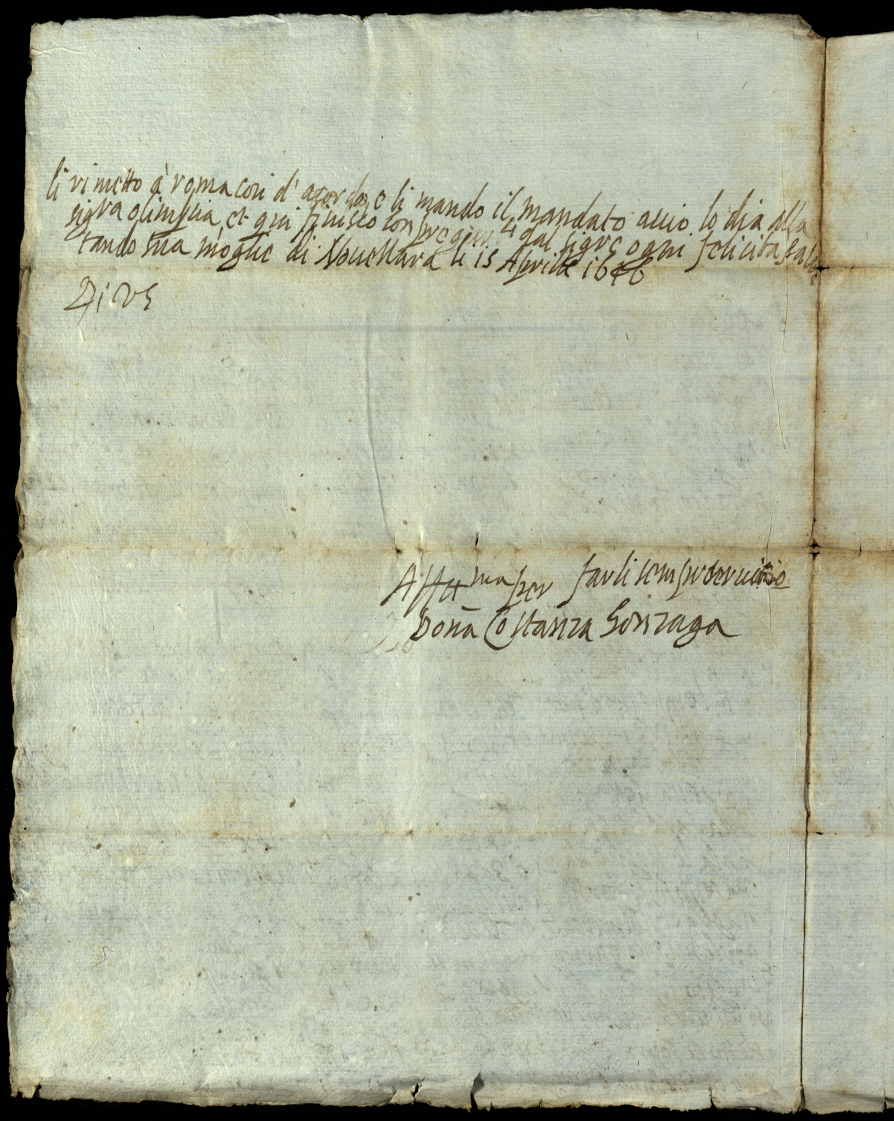 li rimetto à roma cosi d'acordo e li mando il mandato acciò lo dia alla
sig.ra olimpia, et qui finisco con pregar li dal sig.re ogni felicita salu
tando sua moglie di Novellara li 15 Aprile 1646
Di VS
Aff.ma per farli sempre servitio
Donna Costanza Gonzaga